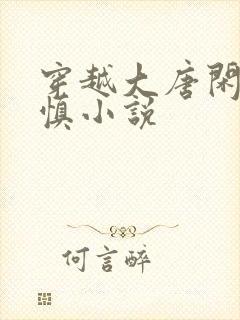 穿越大唐閑
慎小說
何言醉